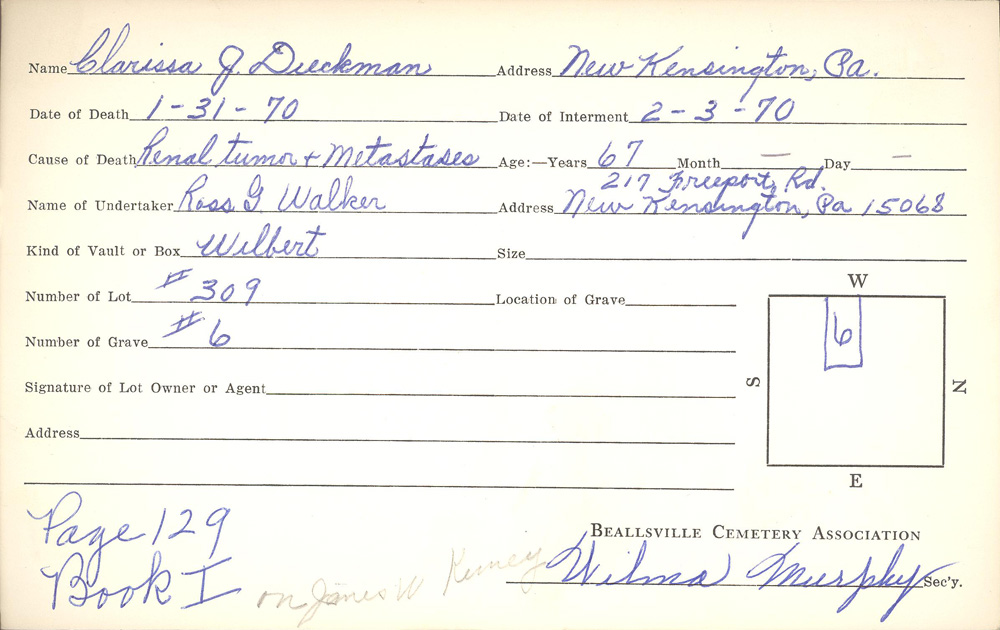 Name Clarissa J. Dieckman Address New Kensington, Pa.
Date of Death 1-31-70 Date of Interment 2-3-70
Cause of Death Renal tumor + Metastases Age:—Years 67 Month — Day —
217 Freeport Rd.
Name of Undertaker Ross G Walker Address New Kensington, Pa 15068
Kind of Vault or Box Wilbert Size
Number of Lot # 309 Location of Grave
Number of Grave # 6
W
6
S
N
E
Signature of Lot Owner or Agent
Address
Page 129
Book I
on James W
BEALLSVILLE CEMETERY ASSOCIATION
Wilma Murphy Sec'y.